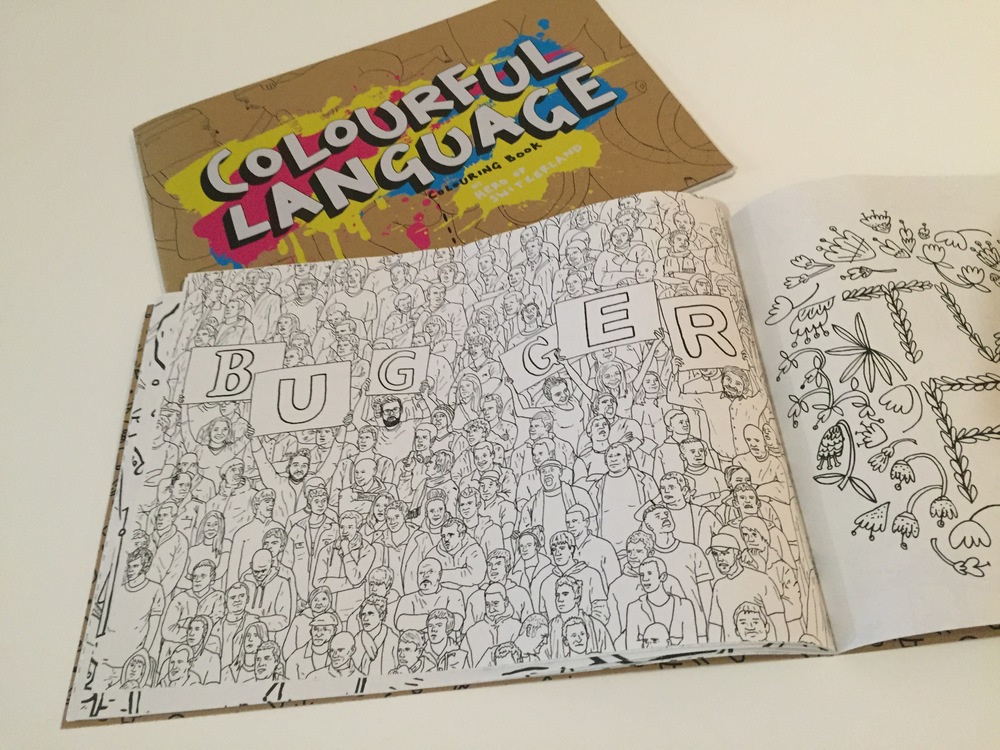 COLOURFUL
LANGUAGE
COLOURING BOOK
HEAD OF
SWITZERLAND
BUGGER